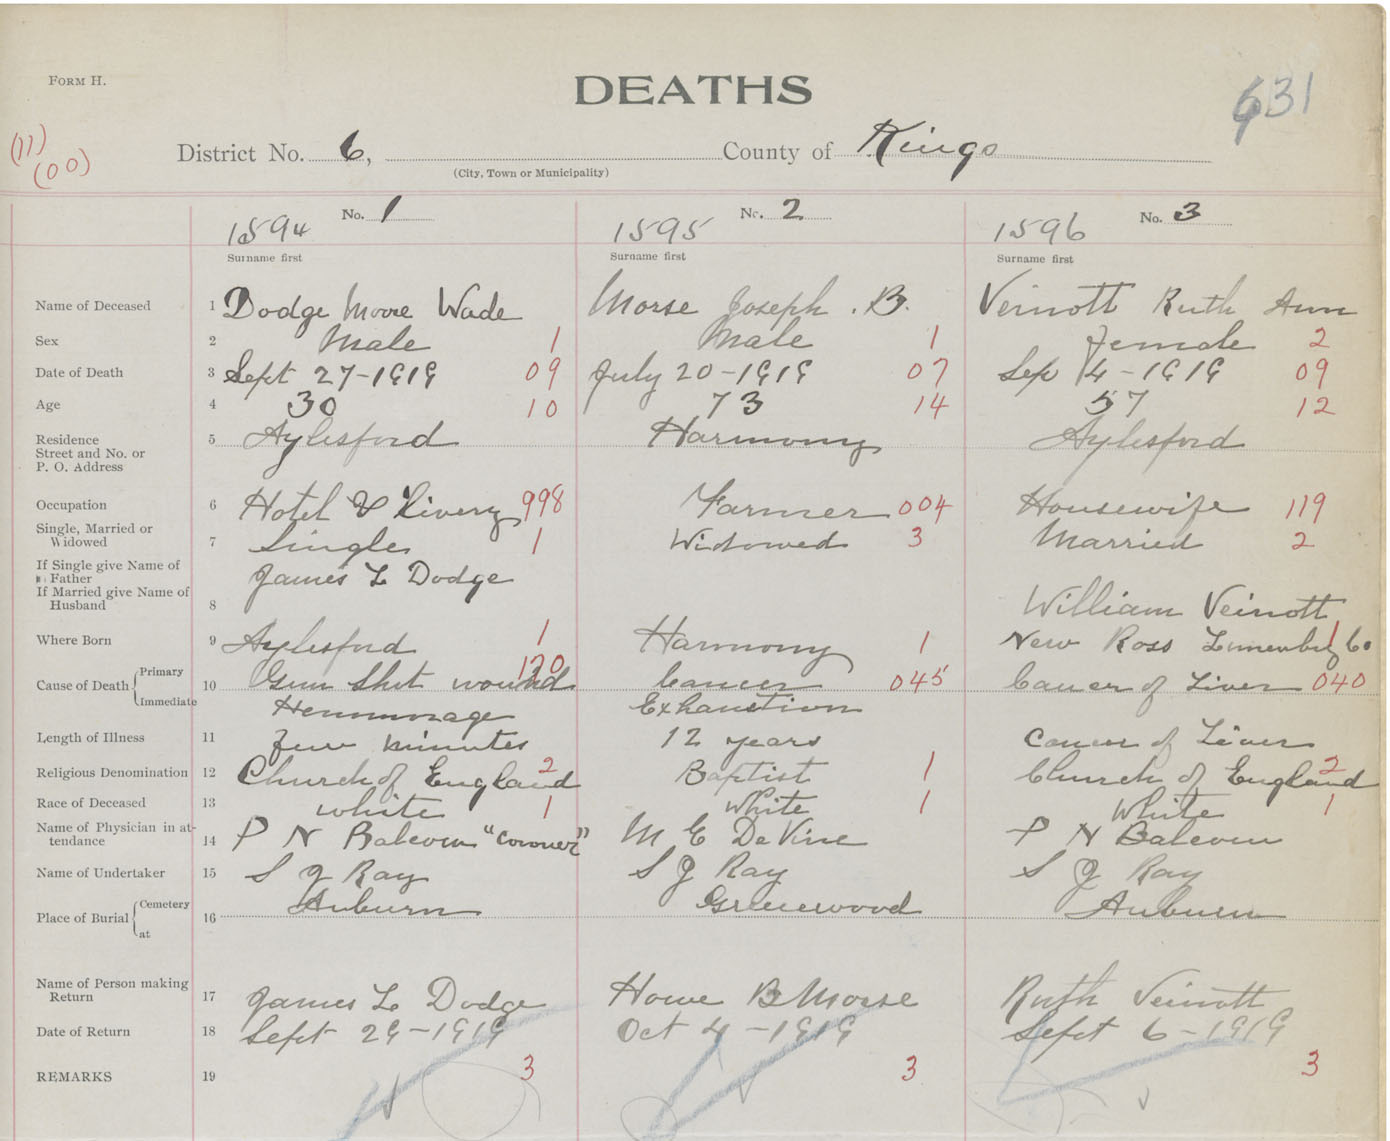 FORM H.
DEATHS
631
(11)
(00)
District No. 6, County of Kings
(City, Town or Municipality)
No. 1 No. 2 No. 3
1594 1595 1596
Surname first Surname first Surname first
Name of Deceased 1 Dodge Moore Wade Morse Joseph . B. Veinott Ruth Ann
Sex 2 Male 1 Male 1 Female 2
Date of Death 3 Sept 27-1919 09 July 20-1919 07 Sep 4-1919 09
Age 4 30 10 73 14 57 12
Residence 5 Aylesford Harmony Aylesford
Street and No. or
P. O. Address
Occupation 6 Hotel & Livery 998 Farmer 004 Housewife 119
Single, Married or
Widowed 7 Single 1 Widowed 3 Married 2
If Single give Name of
Father James L Dodge
If Married give Name of
Husband 8 William Veinott
Where Born 9 Aylesford 1 Harmony 1 New Ross Lunenbg 1 60
Cause of Death Primary 10 Gun Shot wound 170 Cancer 045 Cancer of Liver 040
Immediate Hemmorage Exhaustion
Length of Illness 11 few minutes 12 years Cancer of Liver
Religious Denomination 12 Church of England 2 Baptist 1 Church of England 2
Race of Deceased 13 White 1 White 1 White 1
Name of Physician in at-
tendance 14 P N Balcom "Coroner" M E DeVine P N Balcom
Name of Undertaker 15 S J Ray S J Ray S J Ray
Place of Burial Cemetery 16 Auburn Greenwood Auburn
at
Name of Person making
Return 17 James L Dodge Howe B Morse Ruth Veinott
Date of Return 18 Sept 29-1919 Oct 4-1919 Sept 6-1919
REMARKS 19 3 3 3